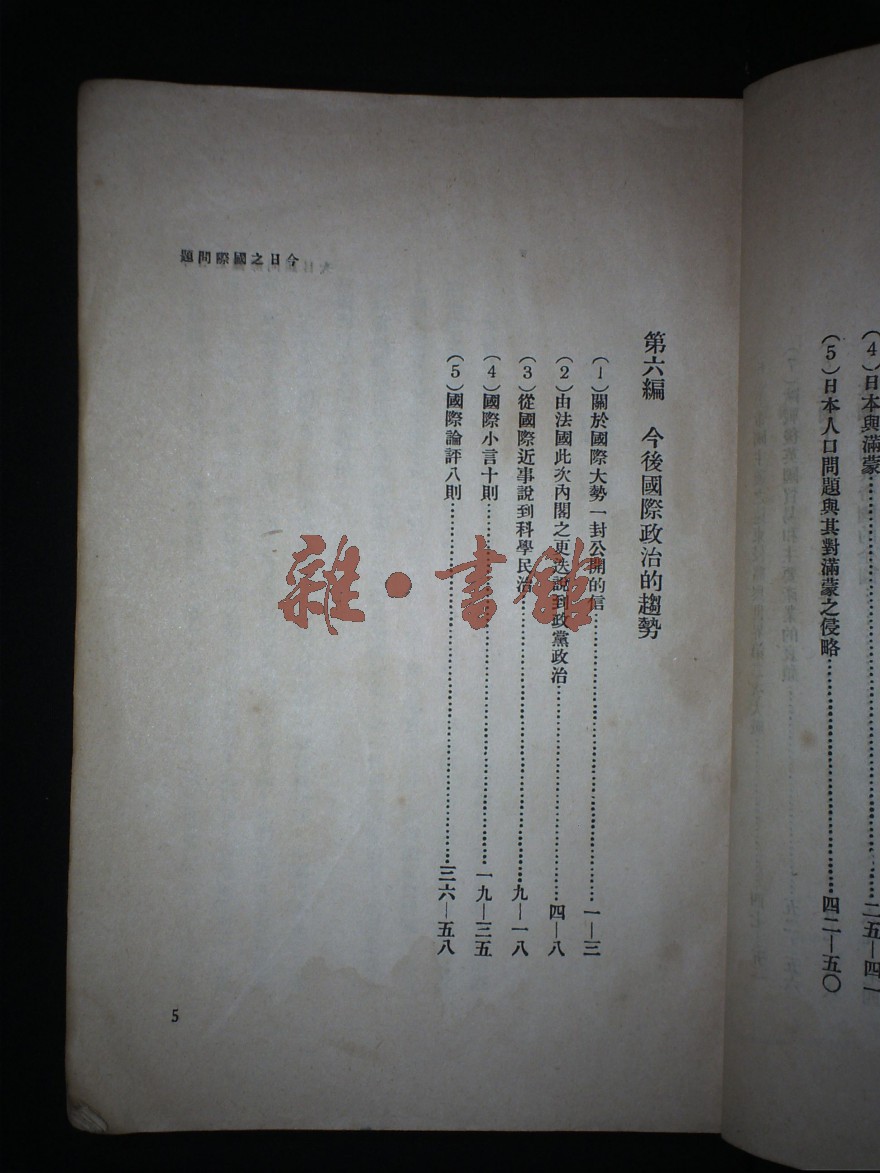 (4)日本與滿蒙……二五—四一
(5)日本人口問題與其對滿蒙之侵略……四二—五〇
第六編　今後國際政治的趨勢
(1)關於國際大勢一封公開的信……一—三
(2)由法國此次內閣之更迭說到政黨政治……四—八
(3)從國際近事說到科學民治……九—一八
(4)國際小言十則……一九—三五
(5)國際論評八則……三六—五八
今日之國際問題
5
雜·書館